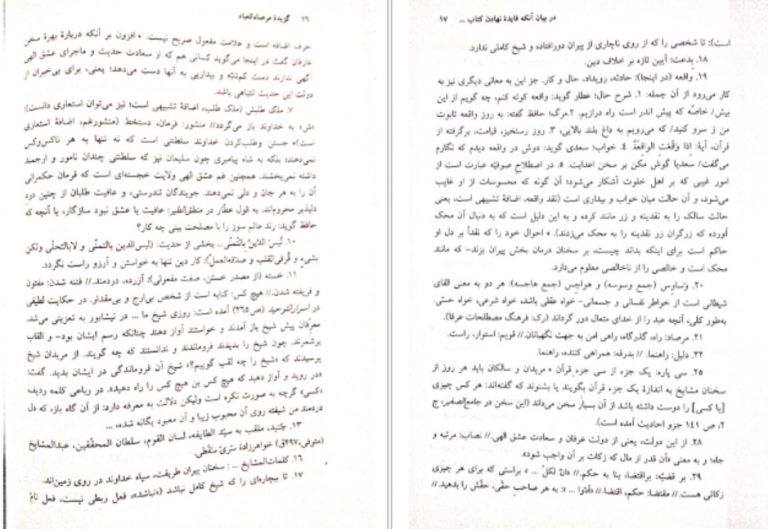 ۲۹ گزیدهٔ مرصادالعباد
حرف اضافه است و علامت مفعول صریح نیست. • افزون بر آنکه دربارهٔ بهرهٔ سخن
عارفان گفت در اینجا می‌گوید کسانی هم که از سعادت حدیث و ماجرای عشق الهی
آگهی ندارند دست کم تنبّه و بیداریی به آنها دست می‌دهد؛ یعنی، برای بی‌خبران از
دولت این حدیث انتباهی باشد.
۷. ملک طلبش (ملک طلب، اضافهٔ تشبیهی است؛ نیز می‌توان استعاری دانست):
«ش» به خداوند باز می‌گردد// منشور: فرمان، دستخط (منشور غم، اضافهٔ استعاری
است)// جستن و طلب‌کردن خداوند سلطنتی است که نه تنها به هر ناکس‌وکس
نمی‌دهند؛ بلکه به شاه پیامبری چون سلیمان نیز که سلطنتی چندان نامور و ارجمند
داشته نمی‌بخشند. همچنین غم عشق الهی ولایت خجسته‌ای است که فرمان حکمرانی
آن را به هر جان و دلی نمی‌دهند. جویندگان تندرستی، و عافیت طلبان از چنین درد
دلپذیر محروم‌اند. به قول عطّار در منطق‌الطیر: عافیت با عشق نبود سازگار، یا آنچه که
حافظ گوید: رند عالم سوز را با مصلحت بینی چه کار؟
۱۰. لَیسَ الدّینُ بِالتَمنّی... بخشی از حدیث: (لیس‌الدین بالتمنّی و لابالتحلّی ولکن
بشیء وقر فی‌القلب و صدقه‌العمل): کار دین تنها به خواستن و آرزو راست نگردد.
۱۱. خسته (از مصدر خستن، صفت مفعولی): آزرده، دردمند.// فتنه شدن: مفتون
و فریفته شدن.// هیچ کس: کنایه است از شخص بی‌ارج و بی‌مقدار. در حکایت لطیفی
در اسرارالتوحید (ص ۲۶۵) آمده است: روزی شیخ ما ... در نیشابور به تعزیتی می‌شد.
معرّفان پیش شیخ باز آمدند و خواستند آواز دهند چنانکه رسم ایشان بود- و القاب
برشمرند. چون شیخ را بدیدند فروماندند و ندانستند که چه گویند. از مریدان شیخ
پرسیدند که «شیخ را چه لقب گوییم؟» شیخ آن فروماندگی در ایشان بدید. گفت:
«در روید و آواز دهید که هیچ کس بن هیچ کس را راه دهید». در رباعی کلمه ردیف
«کسی» گرچه به صورت نکره است ولیکن دلالت به معرفه دارد: از آن گاه باز، که دل
دردمند من شیفته روی آن محبوب زیبا و آن معبود یگانه شده...
۱۳. جنید، ملقب به سیّد الطایفه، لسان القوم، سلطان المحققین، عبدالمشایخ
(متوفی۲۹۷ق) خواهرزادهٔ سَریّ سَقَطی.
۱۶. کلمات‌المشایخ ... : سخنان پیران طریقت، سپاه خداوند در روی زمین‌اند.
۱۷. تا بیچاره‌ای را که شیخ کامل نباشد («نباشد»، فعل ربطی نیست، فعل تامّ
در بیان آنکه فایدهٔ نهادن کتاب ... ۱۷
است): تا شخصی را که از روی ناچاری از پیران دورافتاده و شیخ کاملی ندارد.
۱۸. بِدعت: آیین تازه بر خلاف دین.
۱۹. واقعه (در اینجا): حادثه، رویداد، حال و کار. جز این به معانی دیگری نیز به
کار می‌رود از آن جمله: ۱. شرح حال؛ عطار گوید: واقعه کوته کنم، چه گویم از این
بیش/ خاصّه که پیش اندر است راه درازیم. ۲. مرگ؛ حافظ گفته: به روز واقعه تابوت
من ز سرو کنید/ که می‌رویم به داغ بلند بالایی. ۳. روز رستخیز، قیامت، برگرفته از
قرآن، آیهٔ: اِذا وَقَعَت الواقِعَةُ. ۴. خواب؛ سعدی گوید: دوش در واقعه دیدم که نگارم
می‌گفت/ سعدیا گوش مکن بر سخن اعدایت. ۵. در اصطلاح صوفیّه عبارت است از
امور غیبی که بر اهل خلوت آشکار می‌شود؛ آن گونه که محسوسات از او غایب
می‌شود، و آن حالت میان خواب و بیداری است (نقد واقعه، اضافهٔ تشبیهی است، یعنی
حالت سالک را به نقدینه و زر مانند کرده و به این دلیل است که به دنبال آن محک
آورده که زرگران زر نقدینه را به محک می‌زدند). • احوال خود را که نقداً بر دل او
حاکم است برای اینکه بداند چیست، بر سخنان درمان بخش پیران بزند- که مانند
محک است و خالصی را از ناخالصی معلوم می‌دارد.
۲۰. وَساوس (جمع وسوسه) و هواجِس (جمع هاجسه): هر دو به معنی القای
شیطانی است از خواطر نفسانی و جسمانی- خواه عقلی باشد، خواه شرعی، خواه حسّی.
به‌طور کلی، آنچه عبد را از خدای متعال دور گرداند (رک: فرهنگ مصطلحات عرفا).
۲۱. مرصاد: راه، گذرگاه، راهی امن به جهت نگهبانان.// قویم: استوار، راست.
۲۲. دلیل: راهنما. // بدرقه: همراهی کننده، راهنما.
۲۵. سی پاره: یک جزء از سی جزء قرآن • مریدان و سالکان باید هر روز از
سخنان مشایخ به اندازهٔ یک جزء قرآن بگویند یا بشنوند که گفته‌اند: هر کس چیزی
[یا کسی] را دوست داشته باشد از آن بسیار سخن می‌داند (این سخن در جامع‌الصغیر، ج
۲، ص ۱۴۱ جزو احادیث آمده است).
۲۸. از این دولت، یعنی از دولت عرفان و سعادت عشق الهی.// نصاب: مرتبه و
جاه؛ و به معنی «آن قدر از مال که زکات بر آن واجب شود».
۲۹. بر قضیّه: براقتضاء، بنا به حکم.// «انّ لکلّ ... » براستی که برای هر چیزی
زکاتی هست.// مقتضا: حکم، اقتضا.// «فآتوا ... »: به هر صاحب حقّی، حقّش را بدهید. //